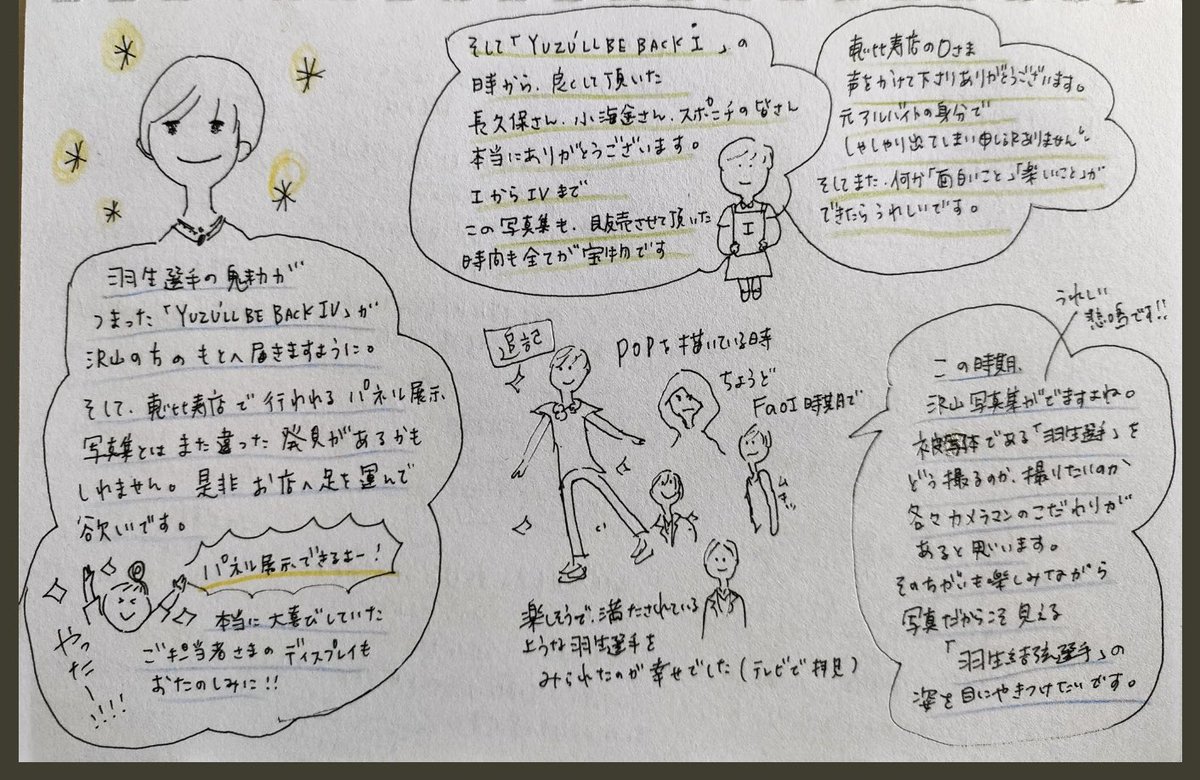 そして「YUZU'LL BE BACK I」の
時から、良くして頂いた
長久保さん、小海途さん、スポニチの皆さん
本当にありがとうございます。
IからIVまで
この写真集も、販売させて頂いた
時間も全てが宝物です
I
恵比寿店のOさま
声をかけて下さりありがとうございます。
元アルバイトの身分で
しゃしゃり出てしまい申し訳ありません
そしてまた、何か「面白いこと」「楽しいこと」が
できたらうれしいです。
羽生選手の魅力が
つまった「YUZU'LL BE BACK IV」が
沢山の方のもとへ届きますように。
そして、恵比寿店で行われるパネル展示、
写真集とはまた違った発見があるかも
しれません。是非お店へ足を運んで
欲しいです。
パネル展示できるよー!
やったー!!!!
本当に大喜びしていた
ご担当者さまのディスプレイも
おたのしみに!!
追記
POPを描いている時
ちょうど
FaOI時期で
ムキッ
楽しそうで、満たされている
ような羽生選手を
みられたのが幸せでした(テレビで拝見)
うれしい
悲鳴です!!
この時期、
沢山写真集がでますよね。
被写体である「羽生選手」を
どう撮るのか、撮りたいのか
各々カメラマンのこだわりが
あると思います。
そのちがいも楽しみながら
写真だからこそ見える
「羽生結弦選手」の
姿を目にやきつけたいです。